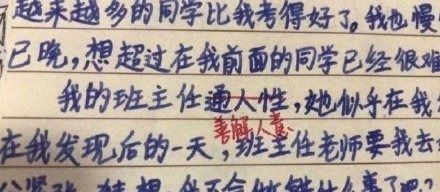 越来越多的同学比我考得好了。我也慢
已晚，想超过在我前面的同学已经很难
我的班主任通人性，她似乎在我
善解人意
在我发现后的一天，班主任老师要我去